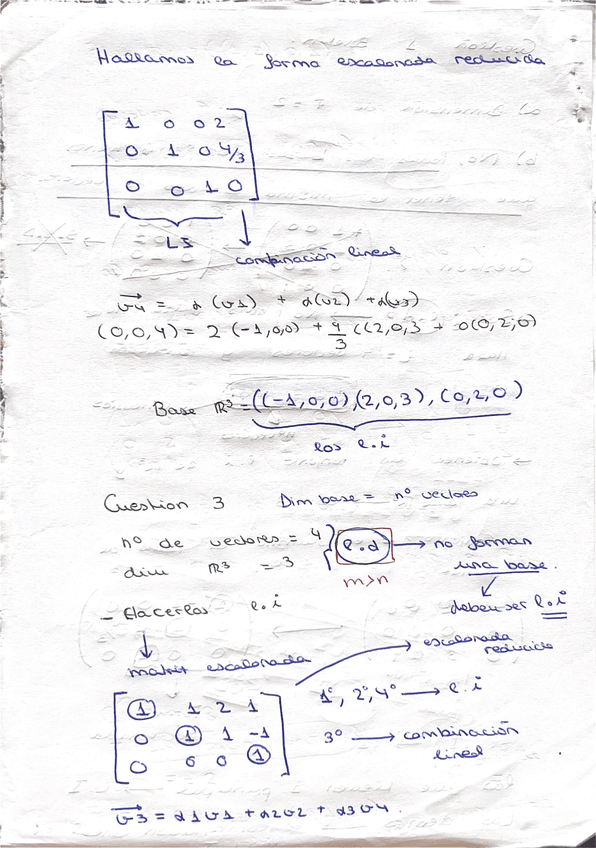 Hallamos la forma escalonada reducida
1 0 0 2
0 1 0 4/3
0 0 1 0
LI
combinación lineal
v4 = α(v1) + α(v2) + α(v3)
(0,0,4) = 2 (-1,0,0) + 4/3 ((2,0,3 + 0(0,2,0)
Base ℝ³ = ((-1,0,0),(2,0,3),(0,2,0)
los l.i
Cuestion 3 Dim base = nº vectores
nº de vectores = 4
dim ℝ³ = 3
l.d → no forman
una base.
m>n
deben ser l.i
- Hacerlos l.i
matriz escalonada
escalonada
reducida
1 1 2 1
0 1 1 -1
0 0 0 1
1º, 2º, 4º → l.i
3º → combinación
lineal
v3 = α1v1 + α2v2 + α3v4.